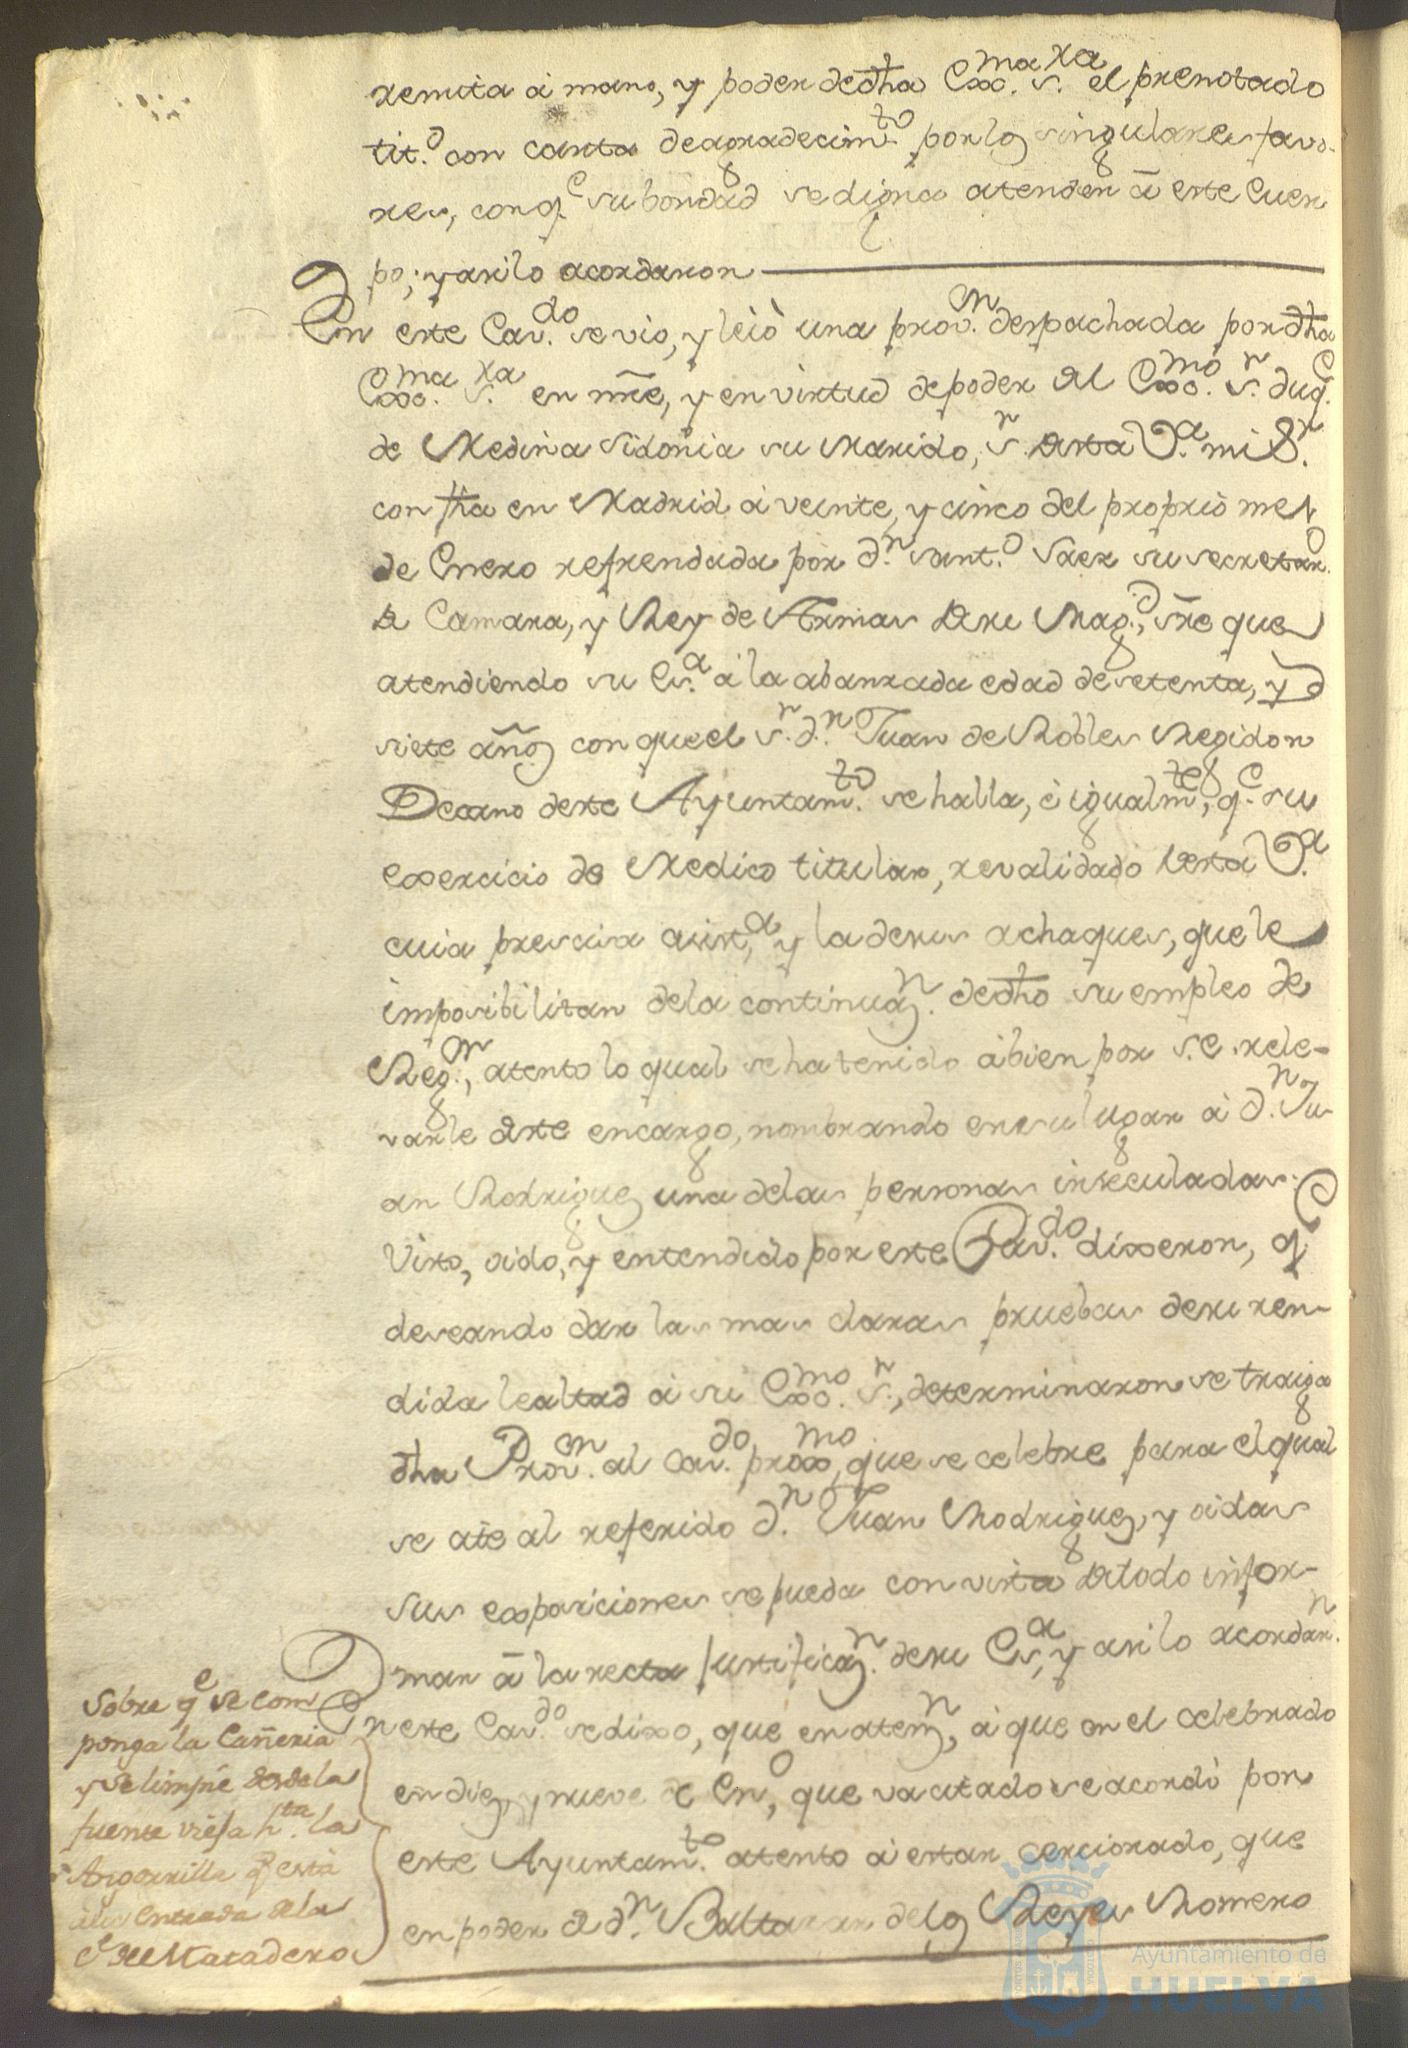 remita â mano, y poder de dha Exc.ma S.ra el prenotado
tit.o con carta de agradecim.to por los singulares favo-
res, con q.e su bondad se digna atender â este Cuer
po; y asi lo acordaron
En este Cav.do se vio, y leiò una prov.on despachada por dha
Exc.ma S.ra en nre, y en virtud de poder del Exc.mo S.r duq.e
de Medina Sidonia su Marido, S.r desta V.a mi S.r
con fha en Madrid à veinte, y cinco del proprio mes
de Enero refrendada por d.n Sant.o Saez su secretar.o
de Camara, y Rey de Armas de su Mag.d, sre que
atendiendo su Ex.a â la abanzada edad de setenta, y
siete años con que el S.r d.n Juan de Robles Regidor
Decano deste Ayuntam.to se halla, è igualm.te, q.e su
exercicio de Medico titular, revalidado desta V.a
cuia presisa asist.a, y la de sus achaques, que le
imposibilitan de la continuaz.n de dho su empleo de
Reg.or, atento lo qual se ha tenido â bien por S.E. rele-
varle deste encargo, nombrando en su lugar â d.n Ju
an Rodriguez una de las personas inseculadas.
Visto, oido, y entendido por este Cav.do dixeron, q.e
deseando dar las mas claras pruebas de su ren-
dida lealtad â su Exc.mo S.r, determinaron se traiga
dha Prov.on al Cav.do prox.mo, que se celebre para el qual
se cite al referido d.n Juan Rodriguez, y oidas
sus exposiciones se pueda con vista de todo infor-
mar â la recta justificaz.n de su Ex.a, y asi lo acordar.n
En este Cav.do se dixo, que en atenz.n, â que en el celebrado
en diez, y nueve de En.o, que va citado se acordò por
este Ayuntam.to atento â estar cerciorado, que
en poder de d.n Baltazar de los Reyes Romero
Sobre q.e se com
ponga la Cañeria
y se limpie desde la
fuente vieja h.ta la
Argamilla q.e està
à la entrada de la
C.e del Matadero
Ayuntamiento de
HUELVA